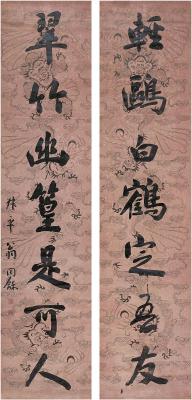 輕鷗白鶴定吾友
翠竹幽篁是可人
翁同龢